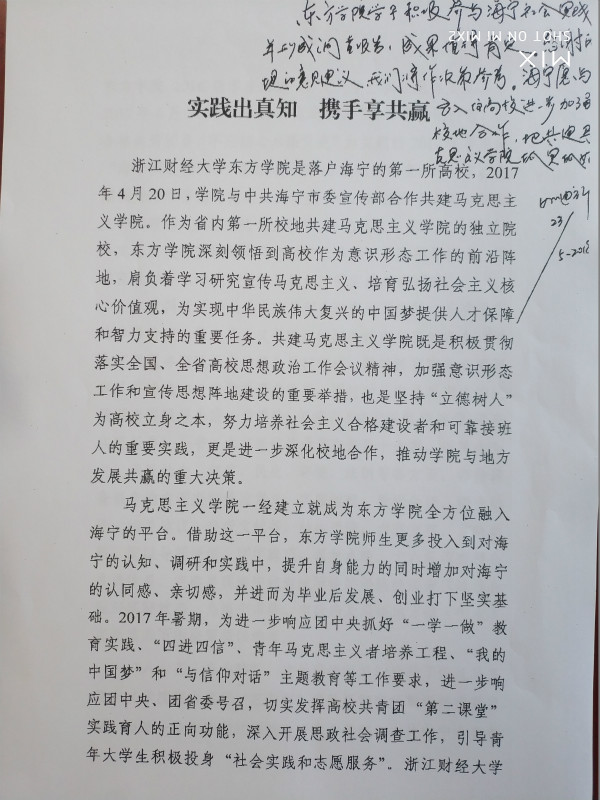 东方学院学子积极参与海宁社会实践
并形成调查报告，成果值得肯定
建议，我们将作决策参考。海宁愿与
SHOT ON MI MIX2
MIX
实践出真知 携手享共赢
校进一步加强
校地合作，
浙江财经大学东方学院是落户海宁的第一所高校，2017
年4月20日，学院与中共海宁市委宣传部合作共建马克思主
义学院。作为省内第一所校地共建马克思主义学院的独立院
校，东方学院深刻领悟到高校作为意识形态工作的前沿阵
地，肩负着学习研究宣传马克思主义、培育弘扬社会主义核
心价值观，为实现中华民族伟大复兴的中国梦提供人才保障
和智力支持的重要任务。共建马克思主义学院既是积极贯彻
落实全国、全省高校思想政治工作会议精神，加强意识形态
工作和宣传思想阵地建设的重要举措，也是坚持“立德树人”
为高校立身之本，努力培养社会主义合格建设者和可靠接班
人的重要实践，更是进一步深化校地合作，推动学院与地方
发展共赢的重大决策。
马克思主义学院一经建立就成为东方学院全方位融入
海宁的平台。借助这一平台，东方学院师生更多投入到对海
宁的认知、调研和实践中，提升自身能力的同时增加对海宁
的认同感、亲切感，并进而为毕业后发展、创业打下坚实基
础。2017年暑期，为进一步响应团中央抓好“一学一做”教
育实践、“四进四信”、青年马克思主义者培养工程、“我的
中国梦”和“与信仰对话”主题教育等工作要求，进一步响
应团中央、团省委号召，切实发挥高校共青团“第二课堂”
实践育人的正向功能，深入开展思政社会调查工作，引导青
年大学生积极投身“社会实践和志愿服务”。浙江财经大学